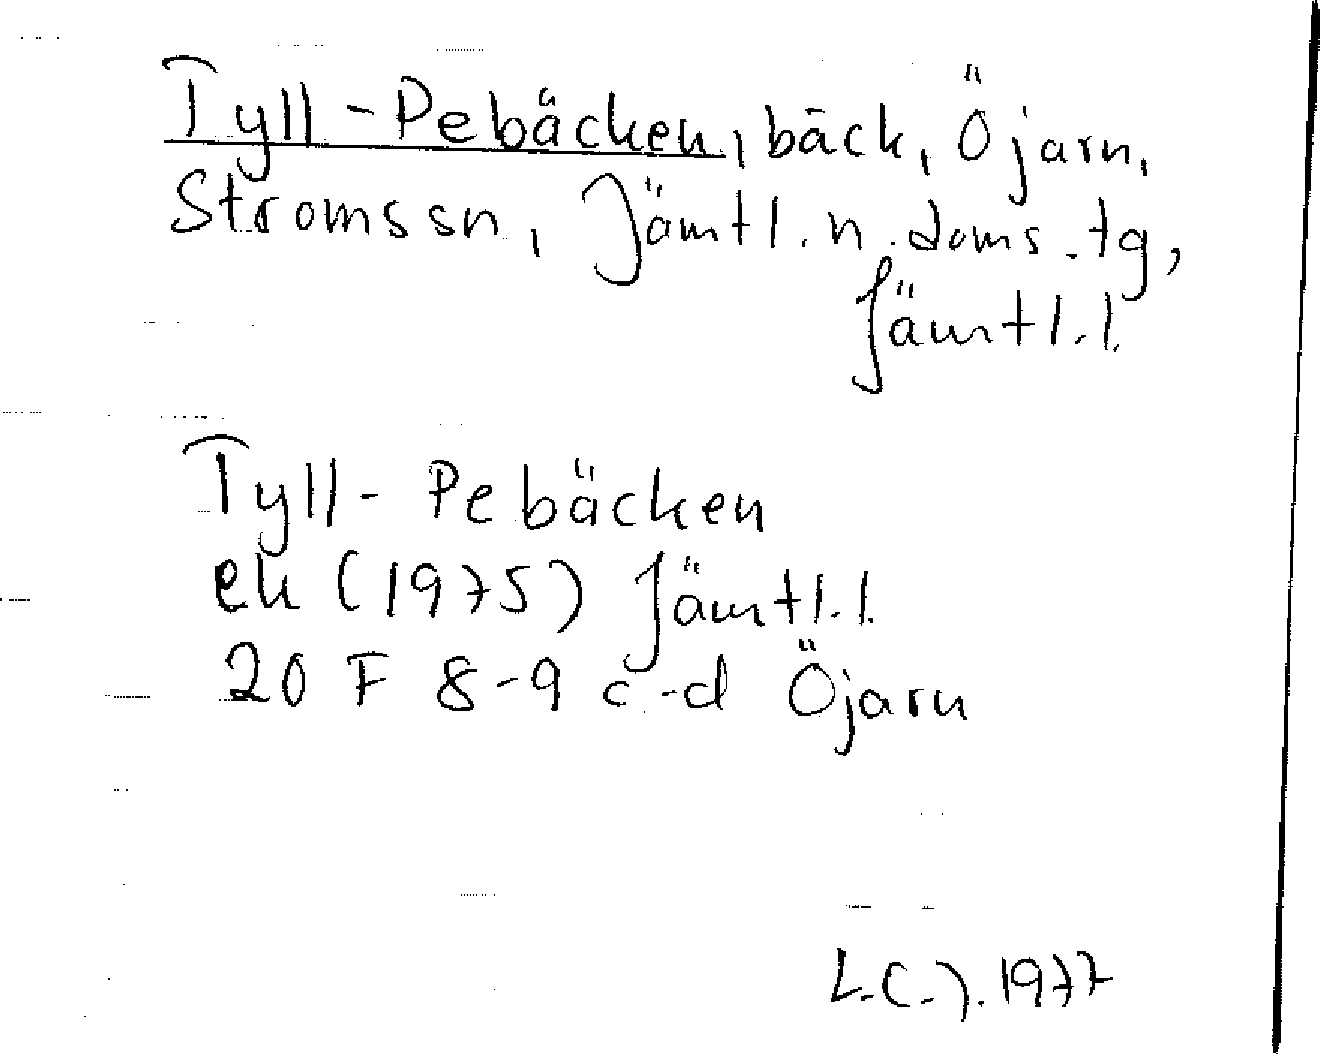 Tyll-Pebäcken, bäck, Öjarn,
Stromssn, Jämtl. n. doms. tg,
Jämtl. l.
Tyll-Pebäcken
ek (1975) Jämtl. l.
20 F 8-9 c-d Öjarn
L.C.J. 1977